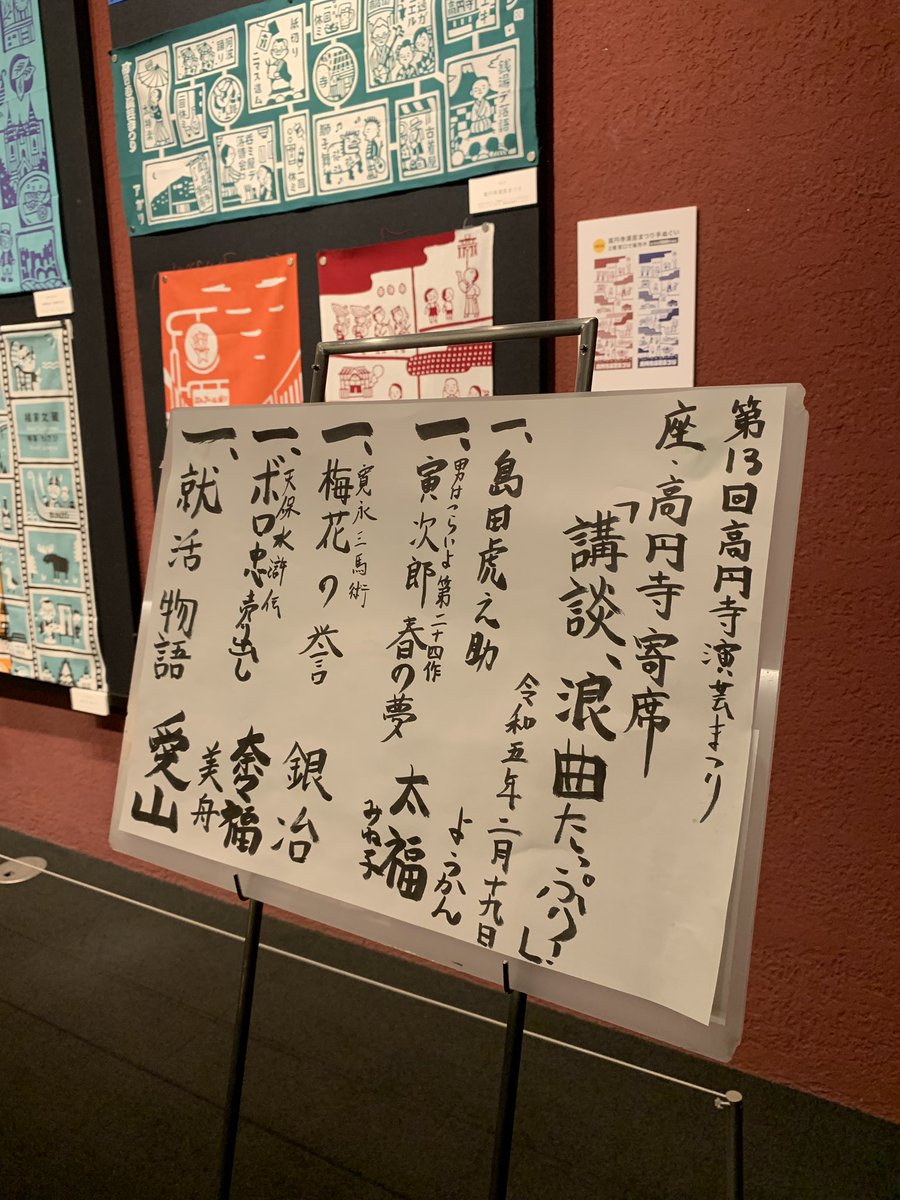 第13回高円寺演芸まつり
座・高円寺寄席
「講談、浪曲たっぷり!」
令和五年二月十九日
一、島田虎之助 ようかん
男はつらいよ第二十四作
一、寅次郎春の夢 太福
みね子
寛永三馬術
一、梅花の誉 銀冶
天保水滸伝
一、ボロ忠売出し 奈々福
美舟
一、就活物語 愛山
紙切り
獅子舞
古着屋
銭湯デ落語
高円寺演芸まつり手ぬぐい